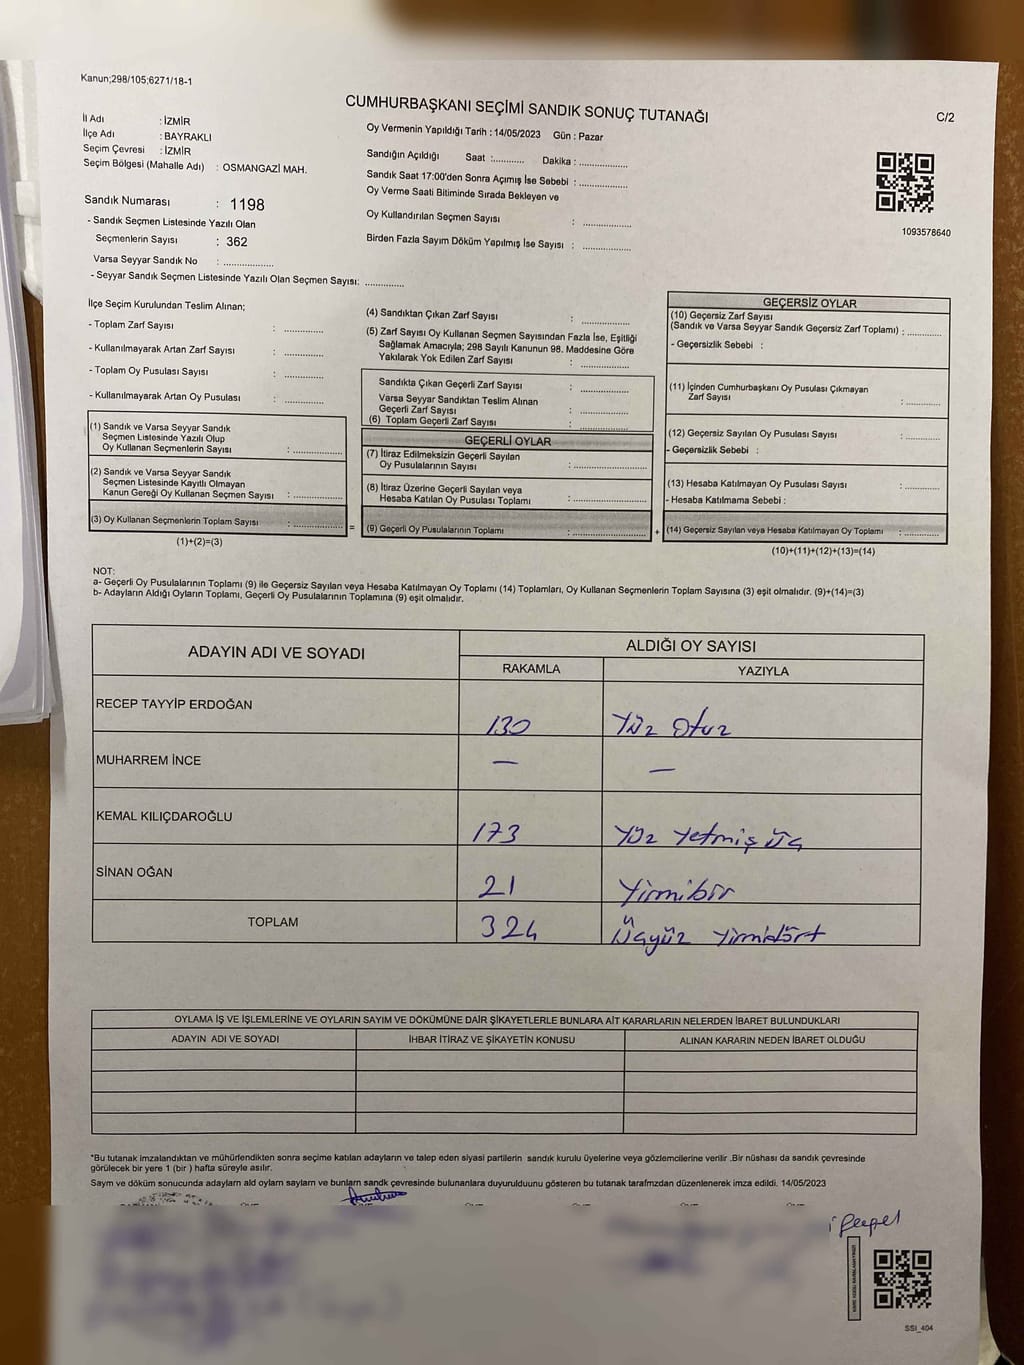 Kanun;298/105;6271/18-1
CUMHURBAŞKANI SEÇİMİ SANDIK SONUÇ TUTANAĞI
C/2
İl Adı : İZMİR
İlçe Adı : BAYRAKLI
Seçim Çevresi : İZMİR
Seçim Bölgesi (Mahalle Adı) : OSMANGAZİ MAH.
Sandık Numarası : 1198
- Sandık Seçmen Listesinde Yazılı Olan
Seçmenlerin Sayısı : 362
Varsa Seyyar Sandık No : ....................
- Seyyar Sandık Seçmen Listesinde Yazılı Olan Seçmen Sayısı: ...............
Oy Vermenin Yapıldığı Tarih : 14/05/2023 Gün : Pazar
Sandığın Açıldığı Saat :............ Dakika : ..................
Sandık Saat 17:00'den Sonra Açımış İse Sebebi : ..................
Oy Verme Saati Bitiminde Sırada Bekleyen ve
Oy Kullandırılan Seçmen Sayısı : ..................
Birden Fazla Sayım Döküm Yapılmış İse Sayısı : ..................
1093578640
İlçe Seçim Kurulundan Teslim Alınan;
- Toplam Zarf Sayısı : ...............
- Kullanılmayarak Artan Zarf Sayısı : ...............
- Toplam Oy Pusulası Sayısı : ...............
- Kullanılmayarak Artan Oy Pusulası : ...............
(1) Sandık ve Varsa Seyyar Sandık
Seçmen Listesinde Yazılı Olup
Oy Kullanan Seçmenlerin Sayısı : ...................
(2) Sandık ve Varsa Seyyar Sandık
Seçmen Listesinde Kayıtlı Olmayan
Kanun Gereği Oy Kullanan Seçmen Sayısı : ...................
(3) Oy Kullanan Seçmenlerin Toplam Sayısı : ................... =
(1)+(2)=(3)
(4) Sandıktan Çıkan Zarf Sayısı : ..................
(5) Zarf Sayısı Oy Kullanan Seçmen Sayısından Fazla İse, Eşitliği
Sağlamak Amacıyla; 298 Sayılı Kanunun 98. Maddesine Göre
Yakılarak Yok Edilen Zarf Sayısı : ..................
Sandıkta Çıkan Geçerli Zarf Sayısı : ..................
Varsa Seyyar Sandıktan Teslim Alınan
Geçerli Zarf Sayısı : ..................
(6) Toplam Geçerli Zarf Sayısı : ..................
GEÇERLİ OYLAR
(7) İtiraz Edilmeksizin Geçerli Sayılan
Oy Pusulalarının Sayısı : ...........................
(8) İtiraz Üzerine Geçerli Sayılan veya
Hesaba Katılan Oy Pusulası Toplamı : ...........................
(9) Geçerli Oy Pusulalarının Toplamı : ........................... +
GEÇERSİZ OYLAR
(10) Geçersiz Zarf Sayısı
(Sandık ve Varsa Seyyar Sandık Geçersiz Zarf Toplamı) : .............
- Geçersizlik Sebebi :
(11) İçinden Cumhurbaşkanı Oy Pusulası Çıkmayan
Zarf Sayısı : .............
(12) Geçersiz Sayılan Oy Pusulası Sayısı : .............
- Geçersizlik Sebebi :
(13) Hesaba Katılmayan Oy Pusulası Sayısı : .............
- Hesaba Katılmama Sebebi :
(14) Geçersiz Sayılan veya Hesaba Katılmayan Oy Toplamı : .............
(10)+(11)+(12)+(13)=(14)
NOT:
a- Geçerli Oy Pusulalarının Toplamı (9) ile Geçersiz Sayılan veya Hesaba Katılmayan Oy Toplamı (14) Toplamları, Oy Kullanan Seçmenlerin Toplam Sayısına (3) eşit olmalıdır. (9)+(14)=(3)
b- Adayların Aldığı Oyların Toplamı, Geçerli Oy Pusulalarının Toplamına (9) eşit olmalıdır.
ADAYIN ADI VE SOYADI ALDIĞI OY SAYISI
RAKAMLA YAZIYLA
RECEP TAYYİP ERDOĞAN 130 Yüz Otuz
MUHARREM İNCE — —
KEMAL KILIÇDAROĞLU 173 Yüz Yetmiş üç
SİNAN OĞAN 21 Yirmibir
TOPLAM 324 Üçyüz Yirmidört
OYLAMA İŞ VE İŞLEMLERİNE VE OYLARIN SAYIM VE DÖKÜMÜNE DAİR ŞİKAYETLERLE BUNLARA AİT KARARLARIN NELERDEN İBARET BULUNDUKLARI
ADAYIN ADI VE SOYADI İHBAR İTİRAZ VE ŞİKAYETİN KONUSU ALINAN KARARIN NEDEN İBARET OLDUĞU
*Bu tutanak imzalandıktan ve mühürlendikten sonra seçime katılan adayların ve talep eden siyasi partilerin sandık kurulu üyelerine veya gözlemcilerine verilir .Bir nüshası da sandık çevresinde
görülecek bir yere 1 (bir ) hafta süreyle asılır.
Sayım ve döküm sonucunda adayların aldı oyların sayların ve bunların sandk çevresinde bulunanlara duyurulduunu gösteren bu tutanak tarafmzdan düzenlenerek imza edildi. 14/05/2023
SSI_404